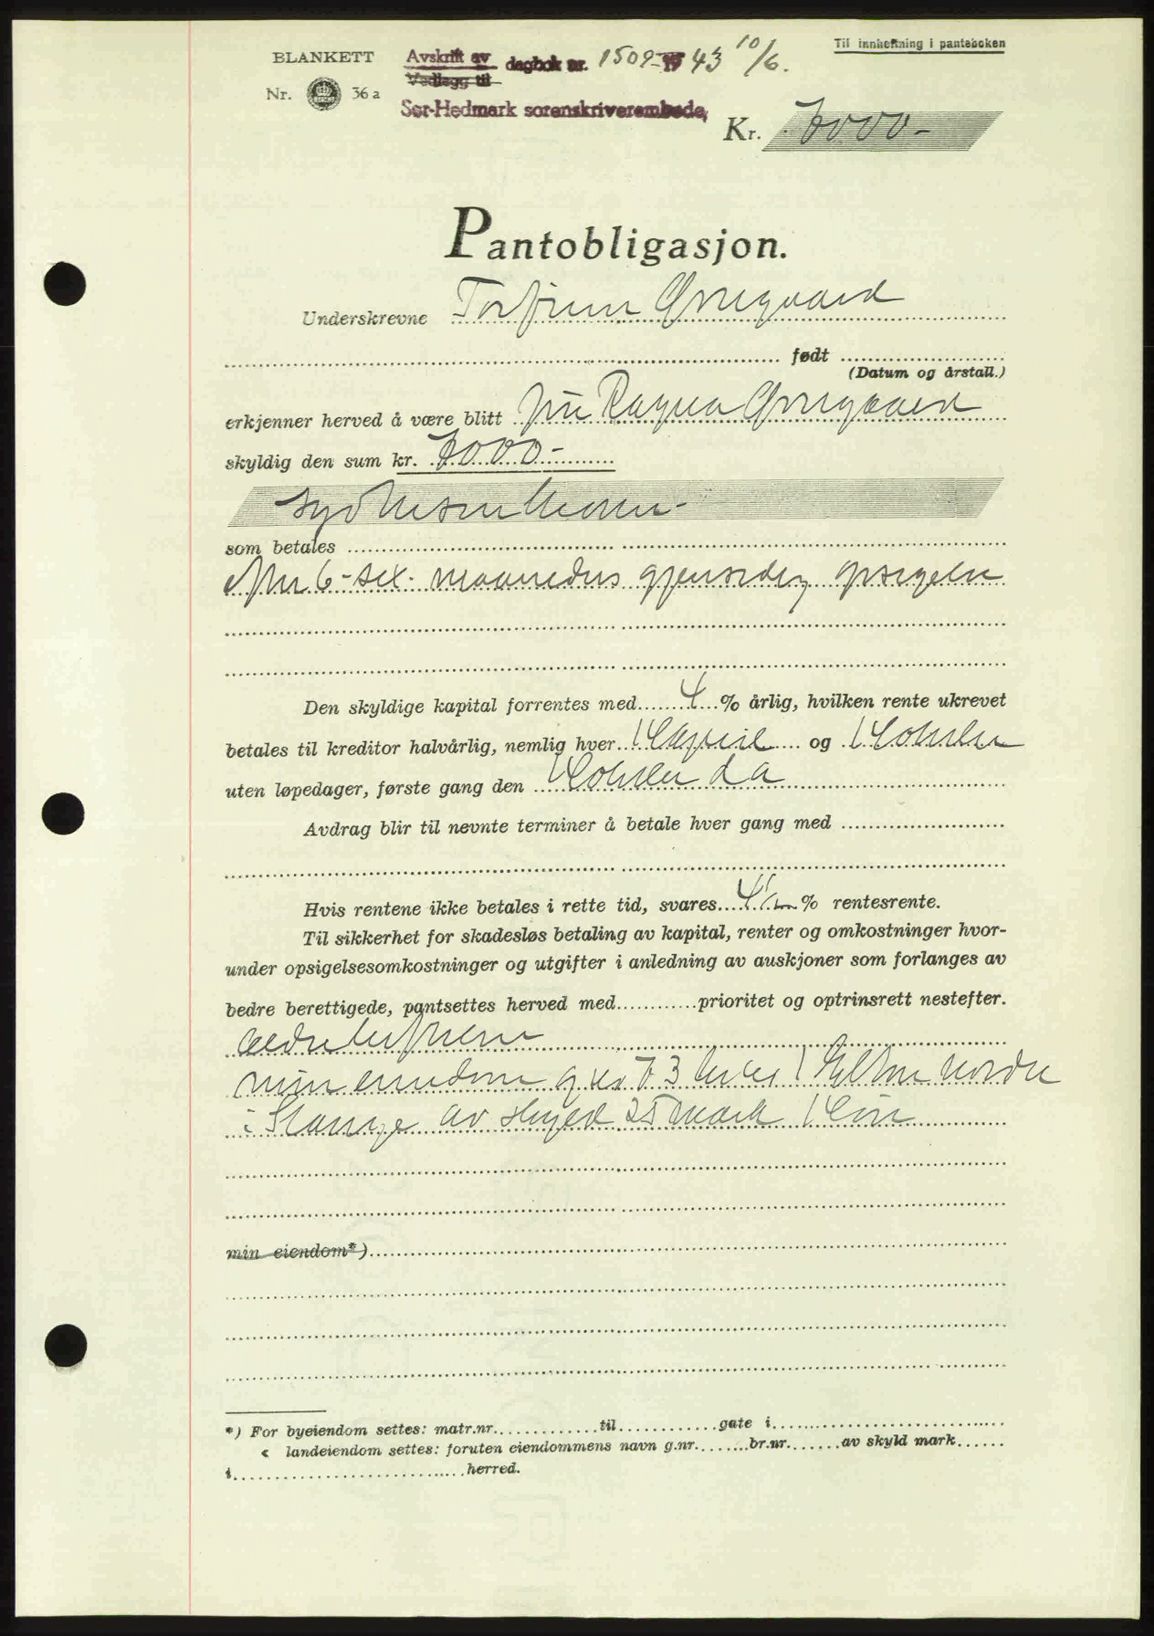 Til innheftning i panteboken
BLANKETT
Nr. 36 a
Avskrift av
Vedlegg til
dagbok nr. 1509 - 43 10/6.
Sør-Hedmark sorenskriverembede,
Kr. 7000 -
Pantobligasjon.
Underskrevne Torfinn Ørnegaard
født
(Datum og årstall.)
erkjenner herved å være blitt fru Ragna Ørnegaard
skyldig den sum kr. 7000 -
syvtusenkroner -
som betales
efter 6 - sex - maaneders gjensidig opsigelse
Den skyldige kapital forrentes med 4 % årlig, hvilken rente ukrevet
betales til kreditor halvårlig, nemlig hver 14 april og 14 oktober
uten løpedager, første gang den 14 oktober d a
Avdrag blir til nevnte terminer å betale hver gang med
Hvis rentene ikke betales i rette tid, svares 4 1/2 % rentesrente.
Til sikkerhet for skadesløs betaling av kapital, renter og omkostninger hvor-
under opsigelsesomkostninger og utgifter i anledning av auskjoner som forlanges av
bedre berettigede, pantsettes herved med prioritet og optrinsrett nestefter.
eldre heftelser
min eiendom g no 73 br no 1 nordre
i Stange av skyld 25 mark 14 øre
min eiendom*)
*) For byeiendom settes: matr.nr. til gate i
« landeiendom settes: foruten eiendommens navn g.nr. br.nr. av skyld mark
i herred.